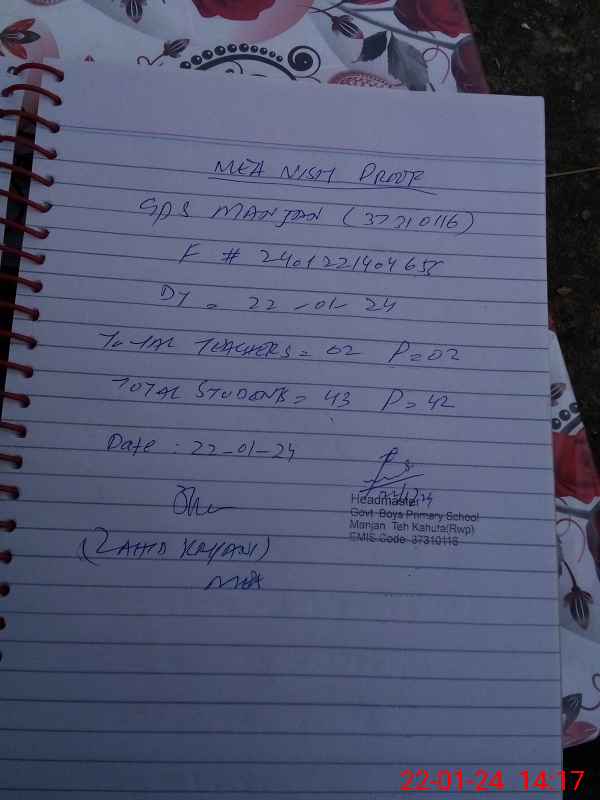 MEA VISIT PROOF
GPS MANJAN (37310116)
F # 240122140465
DT = 22-01-24
TOTAL TEACHERS = 02 P=02
TOTAL STUDENTS = 43 P=42
Date : 22-01-24
Headmaster
Govt Boys Primary School
Manjan Teh Kahuta(Rwp)
EMIS Code 37310116
(ZAHID KAYANI)
MEA
22-01-24 14:17